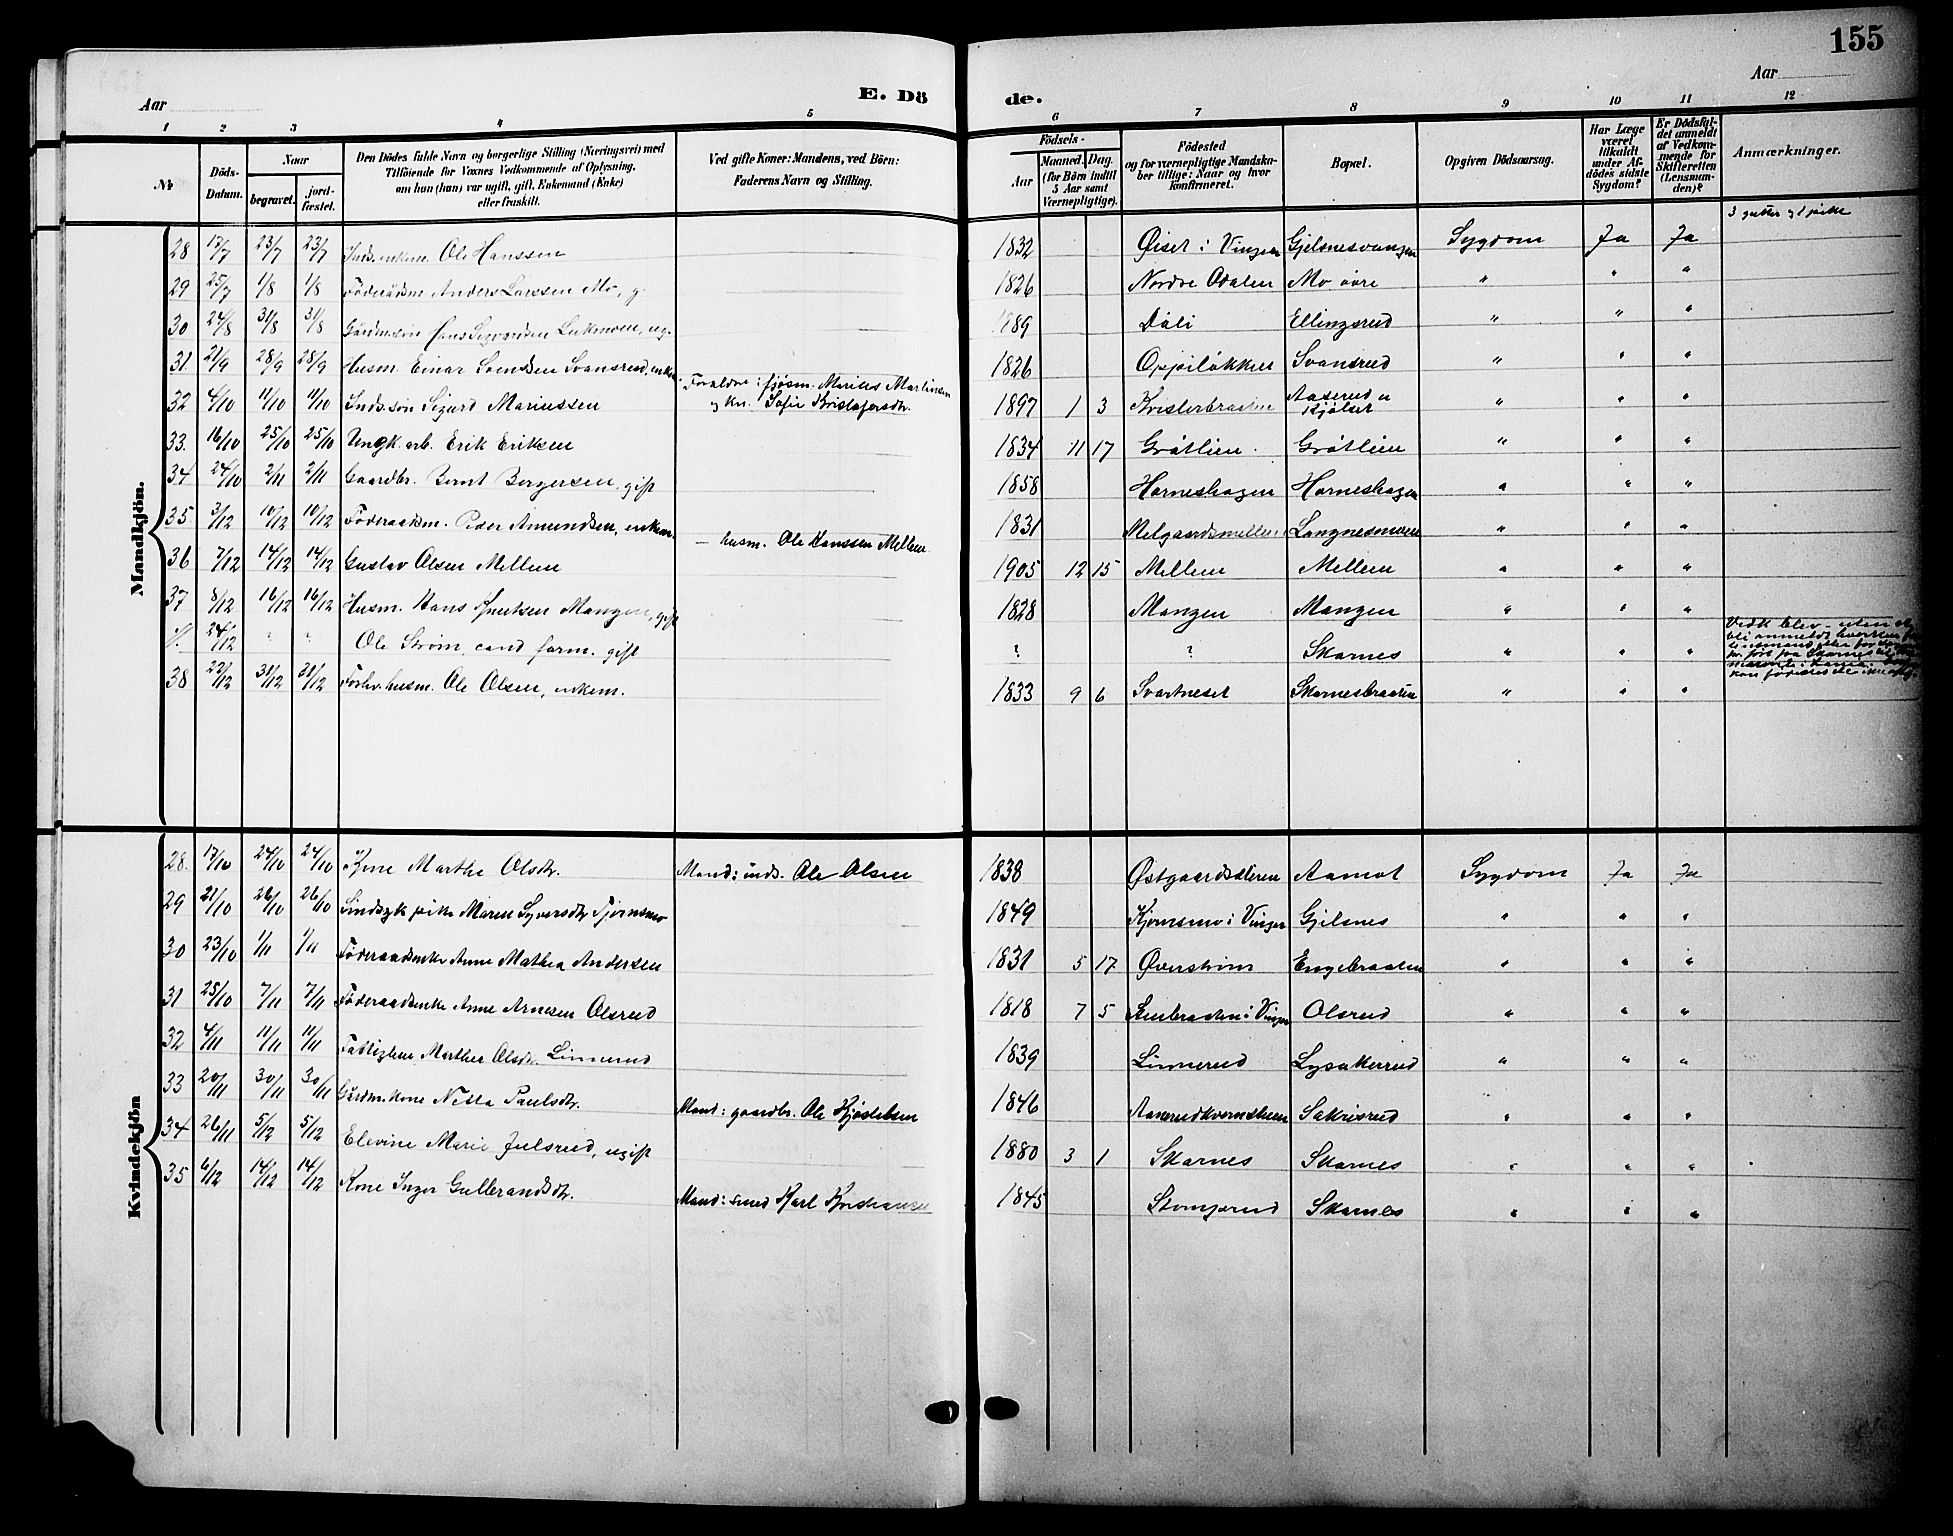 155
Aar
Aar
E. Dö
de.
1 2 3 4 5 6 7 8 9 10 11 12
№
Döds-
Datum.
Naar
begravet.
jord-
fæstet.
Den Dödes fulde Navn og borgerlige Stilling (Næringsvei) med
Tilföiende for Voxnes Vedkommende af Oplysning,
om hun (han) var ugift, gift, Enkemand (Enke)
eller fraskilt.
Ved gifte Koner: Mandens, ved Börn:
Faderens Navn og Stilling.
Födsels-
Aar
Maaned. Dag.
(for Börn indtil
5 Aar samt
Værnepligtige).
Födested
og for værnepligtige Mandska-
ber tillige: Naar og hvor
konfirmeret.
Bopæl.
Opgiven Dödsaarsag.
Har Læge
været
tilkaldt
under Af-
dödes sidste
Sygdom?
Er Dödsfal-
det anmeldt
af Vedkom-
mende for
Skifteretten
(Lensman-
den)?
Anmærkninger.
3 gutter og 1 pike
Mandkjön.
28 17/7 23/7 23/7 Inds. enkem. Ole Hanssen 1832 Øiset i Vinger Gjelsnesvangen Sygdom Ja Ja
29 25/7 1/8 1/8 Föderådsm. Anders Larssen Mo, g. 1826 Nordre Odalen Mo övre " " "
30 24/8 31/8 31/8 Gårdm.sön Hans Sigvardsen, ug. 1889 Dåli Ellingsrud " " "
31 21/9 28/9 28/9 Husm. Einar Svendsen Svansrud, enkem. 1826 Oppilökken Svansrud " " "
Foraldre: Marius Martinsen
32 4/10 11/10 11/10 Inds. sön Sigurd Mariussen og kn. Sofie Kristofersdtr. 1897 1 3 Kristerbraaten Aaserud u Kjölset " " "
33. 16/10 25/10 25/10 Ungk. arb. Erik Eriksen 1834 11 17 Gråtlien. Gråtlien " " "
34 24/10 2/11 2/11 Gaardbr. Bernt Bergersen, gift 1858 Horneshagen Horneshagen " " "
35 3/12 10/12 10/12 Föderaadsm. Peder Amundsen, enkem. 1831 Melgaardsmellem Langnesmoen " " "
— husm. Ole Hanssen Mellem
36 7/12 14/12 14/12 Gustav Olsen Mellem 1905 12 15 Mellem Mellem " " "
37 8/12 16/12 16/12 Husm. Hans Knutsen Mangen, gift 1828 Mangen Mangen " " "
24/12 ? ? Ole Ström, cand farm. gift ? ? Skarnes " " "
38 22/12 31/12 31/12 Forhv. husm. Ole Olsen, enkem. 1833 9 6 Svartneset Skarnesbraaten " " "
Kvindekjön
28. 17/10 24/10 24/10 Kone Marthe Olsdtr. Mand: inds. Ole Olsen 1838 Østgaardsæteren Aamot Sygdom Ja Ja
29 21/10 26/10 26/10 Sindssyk pike Maren Syversdtr Tjernsmo 1849 Kjernsmo i Vinger Gjelsnes " " "
30 23/10 1/11 1/11 Föderaadsenke Anne Mathea Andersen 1831 5 17 Överström Engebraaten " " "
31 25/10 7/11 7/11 Föderaadsenke Anne Arnesen Olsrud 1818 7 5 Stenbraaten i Vinger Olsrud " " "
32 4/11 11/11 11/11 Fattiglem Marthea Olsdtr. Linnerud 1839 Linnerud Lysakerrud " " "
33 20/11 30/11 30/11 Gårdm. kone Netta Paulsdtr. Mand: gaardbr. Ole Kjöstelsen 1846 Aaserudkvernstuen Sakrisrud " " "
34 26/11 5/12 5/12 Elevine Marie Julsrud, ugift 1880 3 1 Skarnes Skarnes " " "
35 6/12 14/12 14/12 Kone Inger Gulbrandsdtr. Mand: smed Karl Kristiansen 1845 Stomperud Skarnes " " "